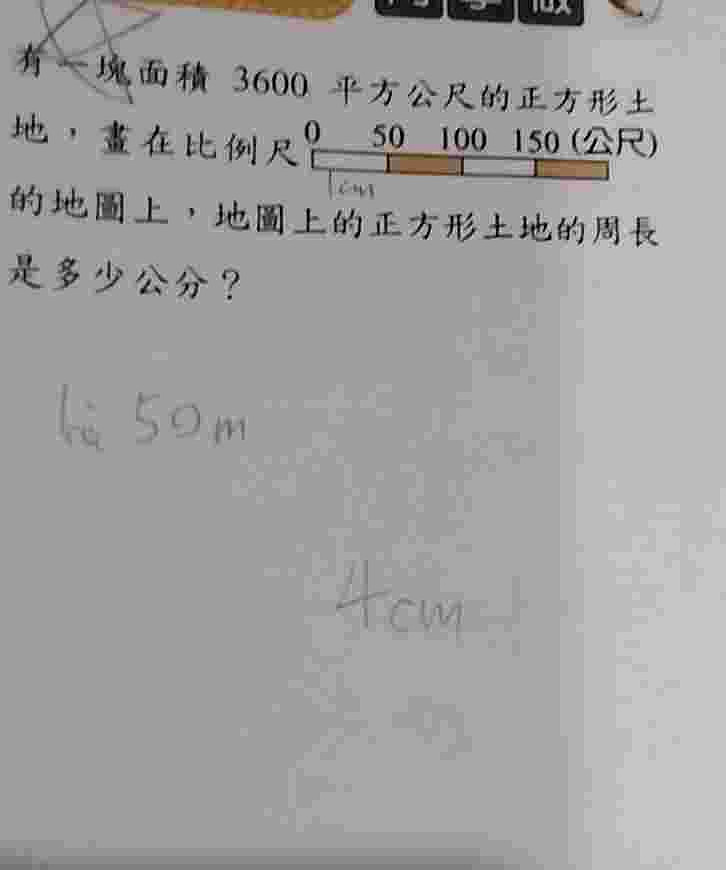 有一塊面積 3600 平方公尺的正方形土
地，畫在比例尺 0 50 100 150 (公尺)
1cm
的地圖上，地圖上的正方形土地的周長
是多少公分？
50m
4cm